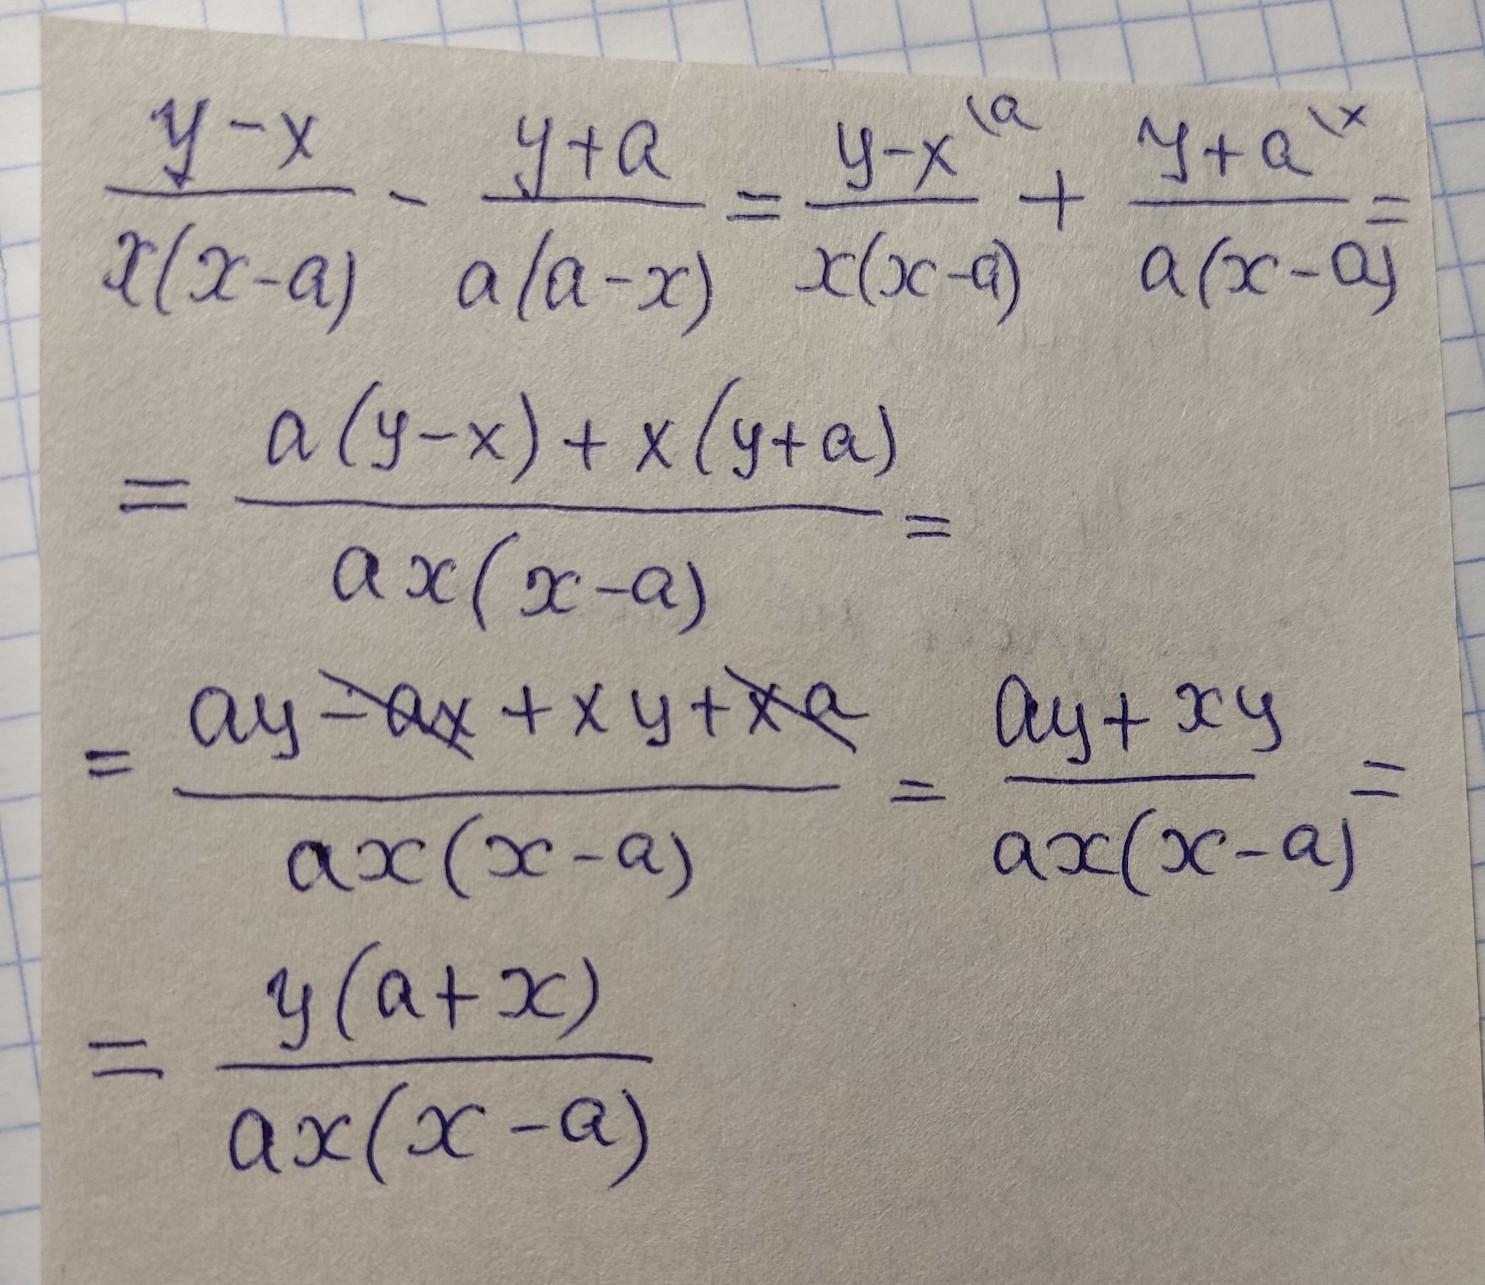 \frac{y-x}{x(x-a)} - \frac{y+a}{a(a-x)} = \frac{y-x^{\backslash a}}{x(x-a)} + \frac{y+a^{\backslash x}}{a(x-a)} =
= \frac{a(y-x)+x(y+a)}{ax(x-a)} =
= \frac{ay-ax+xy+xa}{ax(x-a)} = \frac{ay+xy}{ax(x-a)} =
= \frac{y(a+x)}{ax(x-a)}